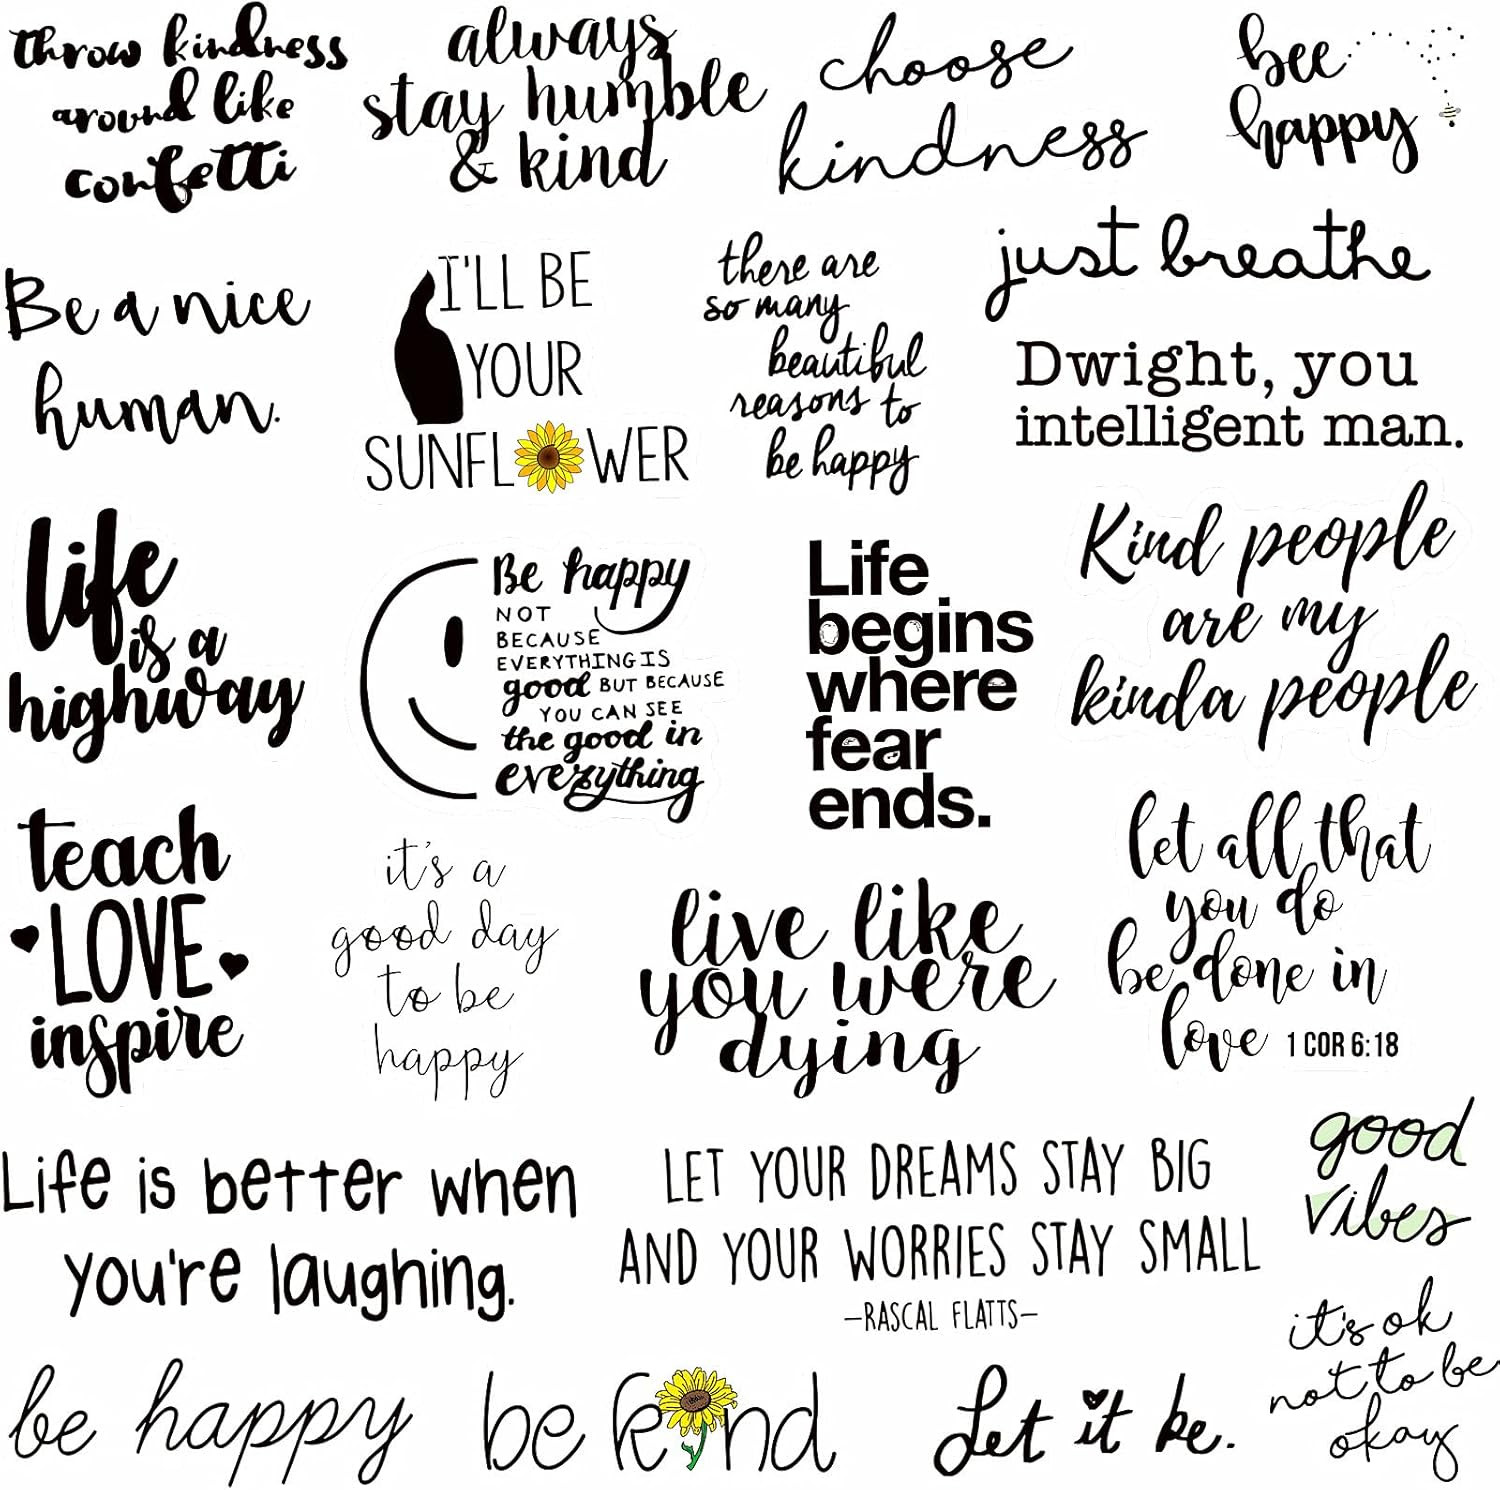 throw kindness
around like
confetti
always
stay humble
& kind
choose
kindness
bee
happy
Be a nice
human.
I'LL BE
YOUR
SUNFLOWER
there are
so many
beautiful
reasons to
be happy
just breathe
Dwight, you
intelligent man.
life
is a
highway
Be happy
NOT
BECAUSE
EVERYTHING IS
good BUT BECAUSE
YOU CAN SEE
the good in
everything
Life
begins
where
fear
ends.
Kind people
are my
kinda people
teach
LOVE
inspire
it's a
good day
to be
happy
live like
you were
dying
let all that
you do
be done in
love 1 COR 6:18
Life is better when
you're laughing.
LET YOUR DREAMS STAY BIG
AND YOUR WORRIES STAY SMALL
—RASCAL FLATTS—
good
vibes
it's ok
not to be
okay
be happy
be kind
Let it be.